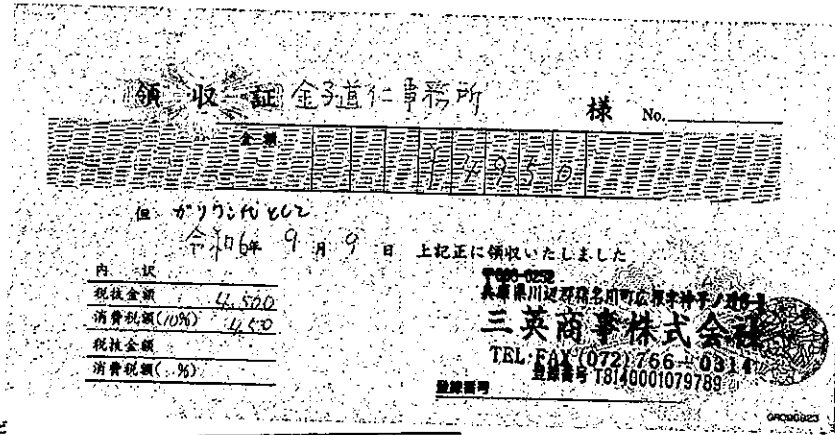 領収証 金子道仁事務所 様 No.
金額 ¥4950
但 ガソリン代として
令和6年 9月 9日 上記正に領収いたしました
内訳
税抜金額 4,500
消費税額(10%) 450
税抜金額
消費税額( %)
〒666-0252
三英商事株式会社
TEL・FAX (072) 766-0314
登録番号 T8140001079789
登録番号